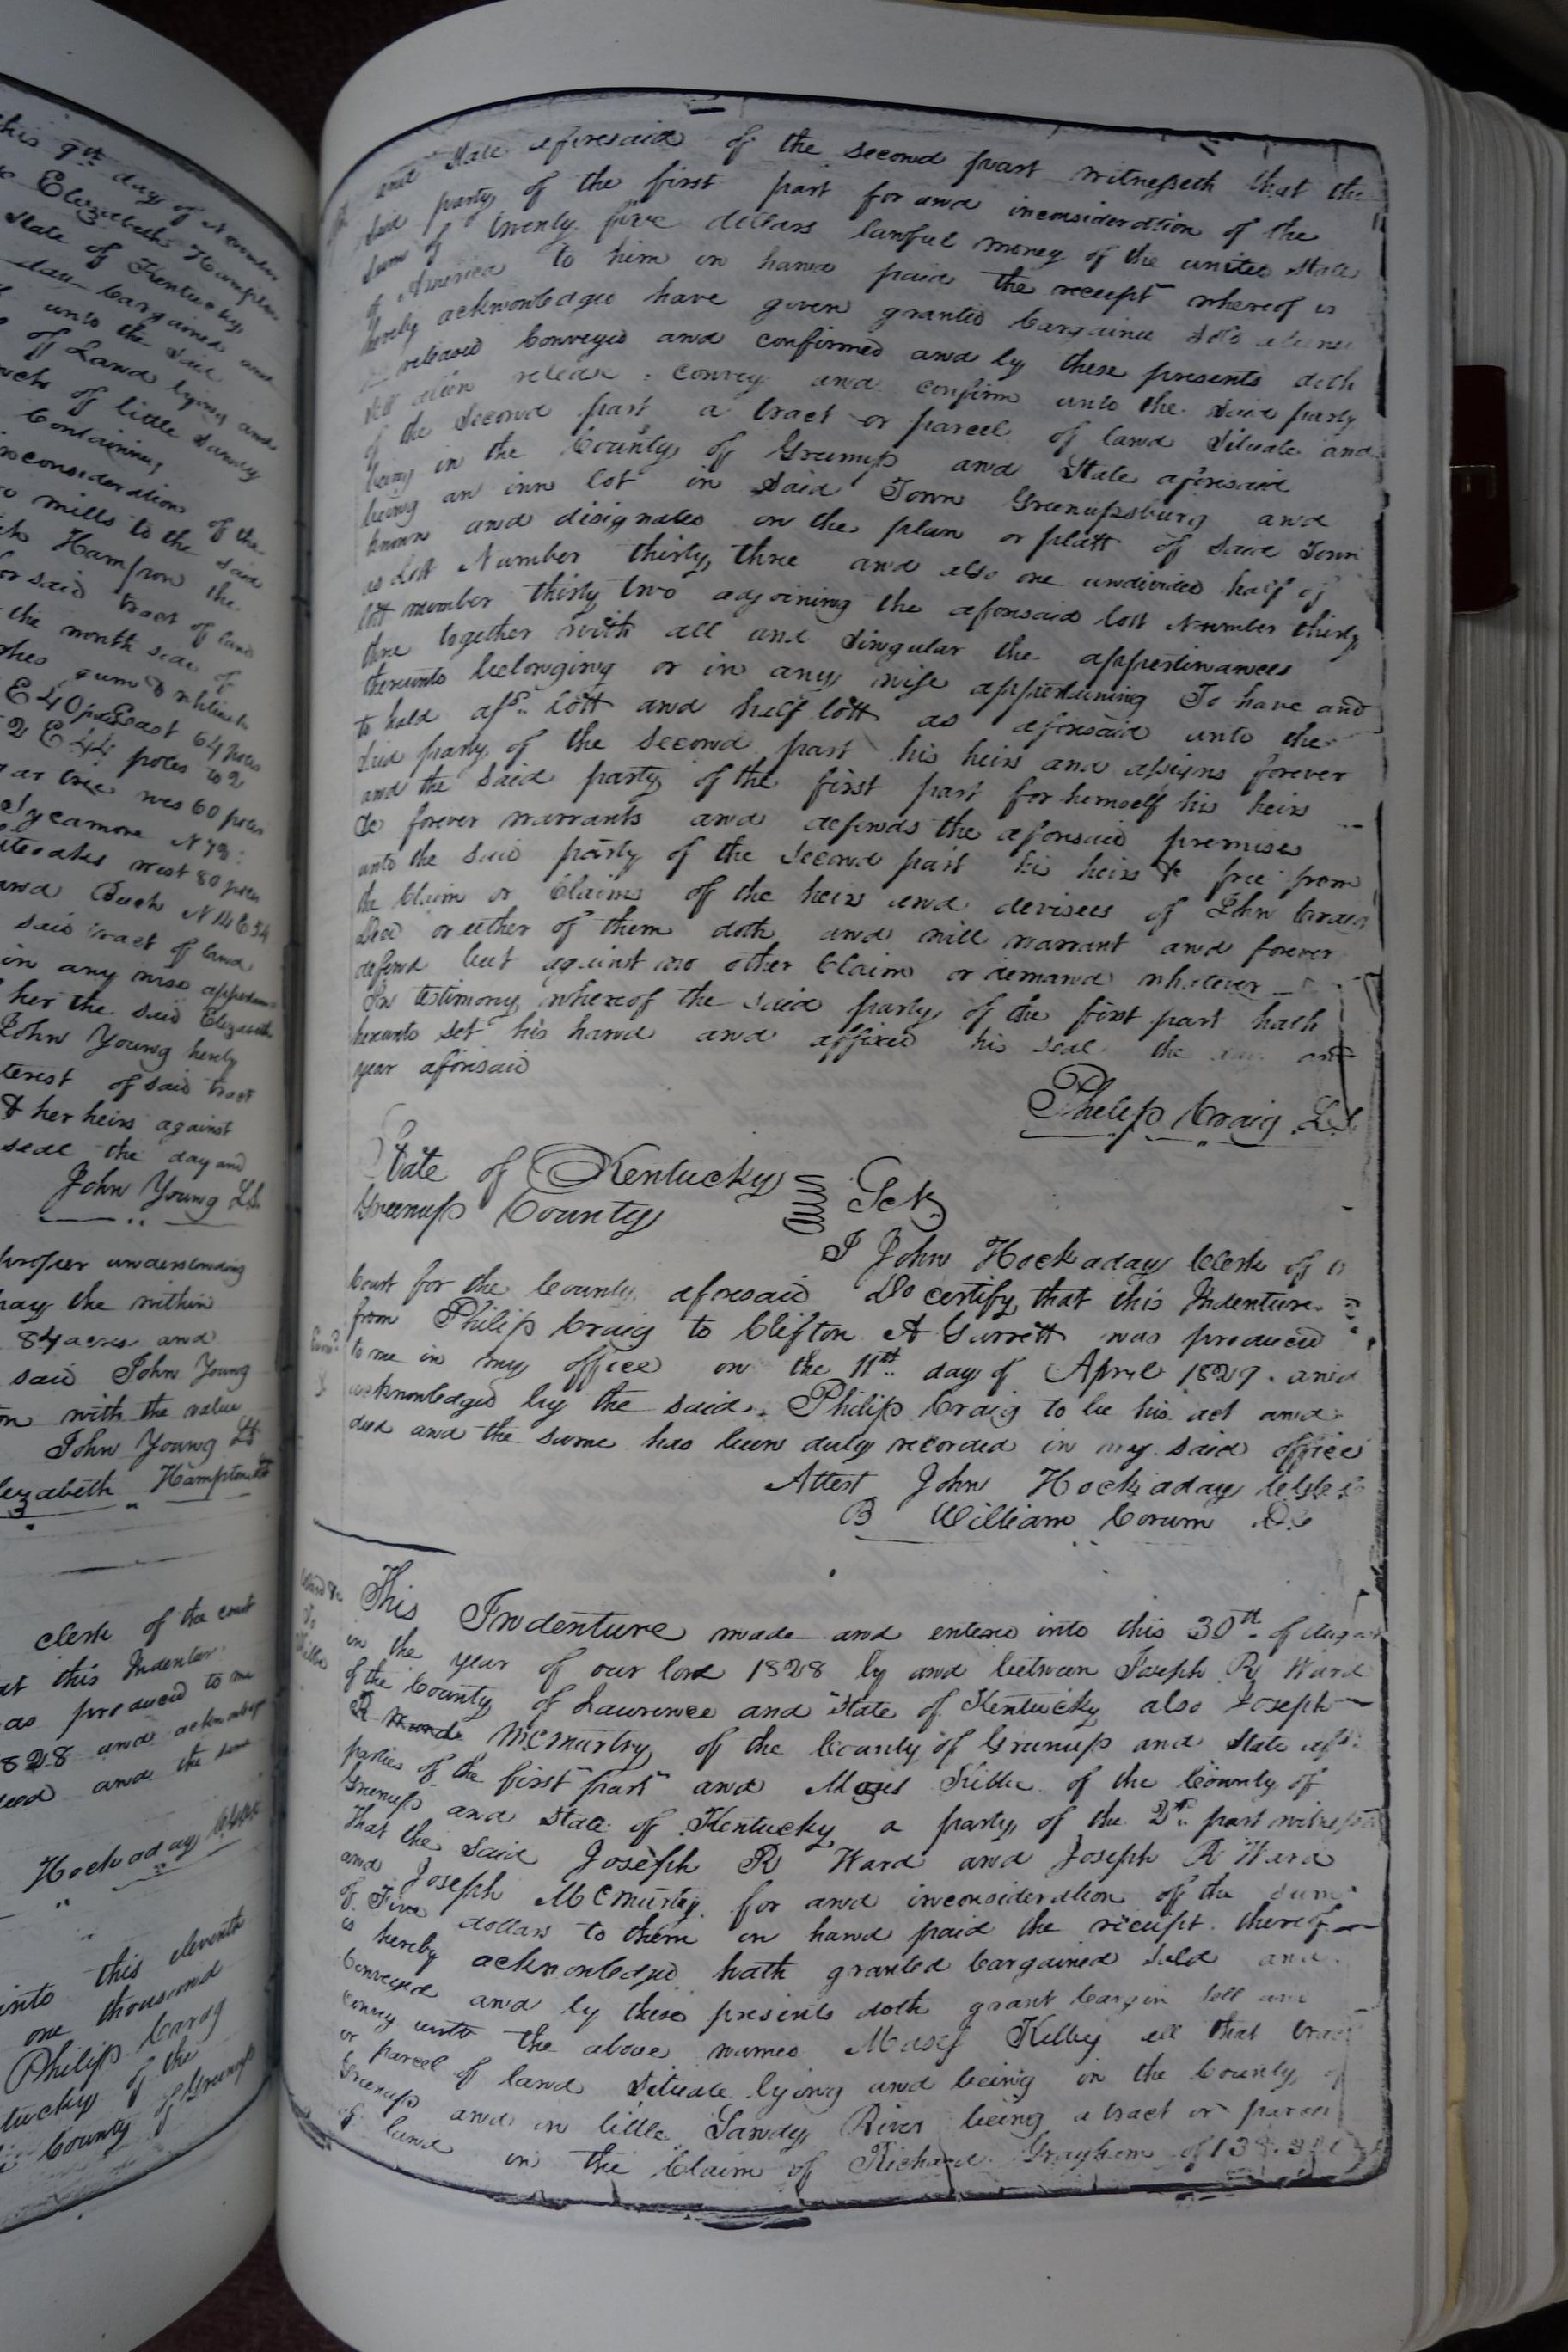 this 9th day of November
Elizabeth Hampton
State of Kentucky
bargained and
unto the said
of Land lying and
of little Sandy
Containing
inconsideration of the
mills to the said
Hampton the
for said tract of land
the north side of
gum &
E 40 poles East 64 poles
2 E 44 poles to 2
tree wes 60 poles
Sycamore N 78
west 80 poles
and Buch N 14 E 54
said tract of land
in any wise
her the said Elizabeth
John Young herby
terest of said tract
& her heirs against
seal the day and
John Young LS
proper understanding
the within
84 acres and
said John Young
on with the value
John Young LS
Elizabeth Hampton
clerk of the court
at this Indenture
as produced to me
828 and acknowledge
deed and the same
Hockaday
into this eleventh
one thousand
Philip Craig
tucky of the
County of Greenup
and State aforesaid of the second part witnesseth that the
said party of the first part for and inconsideration of the
sum of twenty five dollars lawful money of the united State
of America to him in hand paid the receipt whereof is
herely acknowledged have given granted bargained sold aliened
released Conveyed and confirmed and by these presents doth
sell alien release convey and confirm unto the said party
of the Second part a tract or parcel of land Situate and
being in the County of Greenup and State aforesaid
being an inn lot in said Town Greenupsburg and
known and disignated on the plan or platt of said Town
as Lott Number thirty three and also one undivided half of
lott number thirty two adjoining the aforesaid lott Number thirty
three together with all and Singular the appertinances
thereunto belonging or in any wise appertaining To have and
to hold afsd. lott and half lott as aforesaid unto the
said party of the Second part his heirs and assigns forever
and the said party of the first part for himself his heirs
&c forever warrants and defends the aforesaid premises
unto the said party of the Second part his heirs & free from
the Claim or Claims of the heirs and devisees of John Craig
Decd or either of them doth and will warrant and forever
defend but against no other Claim or demand whatever
In testimony whereof the said party of the first part hath
hereunto set his hand and affixed his seal the day and
year aforesaid
Philip Craig LS
State of Kentucky
Greenup County Sct
I John Hockaday Clerk of
Court for the County aforesaid Do certify that this Indenture
from Philip Craig to Clifton A Garrett was produced
to me in my office on the 11th day of April 1829 and
acknowledged by the said Philip Craig to be his act and
deed and the same has been duly recorded in my said office
Attest John Hockaday
B William Corum D.C
This Indenture made and entered into this 30th of August
in the year of our lord 1828 by and between Joseph R Ward
of the County of Laurence and State of Kentucky also Joseph
McMurtry of the County of Greenup and State afsd
parties of the first part and Moses Kibbe of the County of
Greenup and State of Kentucky a party of the 2nd part
That the Said Joseph R Ward and Joseph R Ward
and Joseph McMurtry for and inconsideration of the sum
of Five dollars to them in hand paid the receipt thereof
is hereby acknowledged hath granted bargained sold and
Conveyed and by these presents doth grant bargin sell and
convey unto the above named Masey Kelley all that tract
or parcel of land Situate lying and being in the County of
Greenup and on little Sandy River being a tract or parcel
of land in the Claim of Richard Grayham of